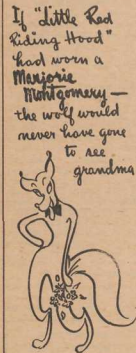 If "Little Red
Riding Hood"
had worn a
Marjorie
Montgomery—
the wolf would
never have gone
to see
grandma